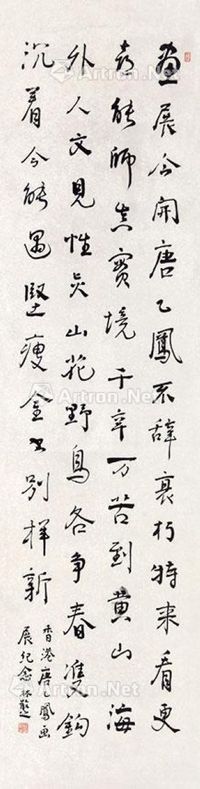 畫展今開唐乙鳳不辭衰朽特来看更
喜能師真實境千辛万苦到黄山海
外人文見性灵山花野鳥各争春雙鈎
沉着今能遇瘦金書別樣新
香港唐乙鳳画
展紀念林散之
Artron.Net
Artron.Net
Artron.Net
Artron.Net